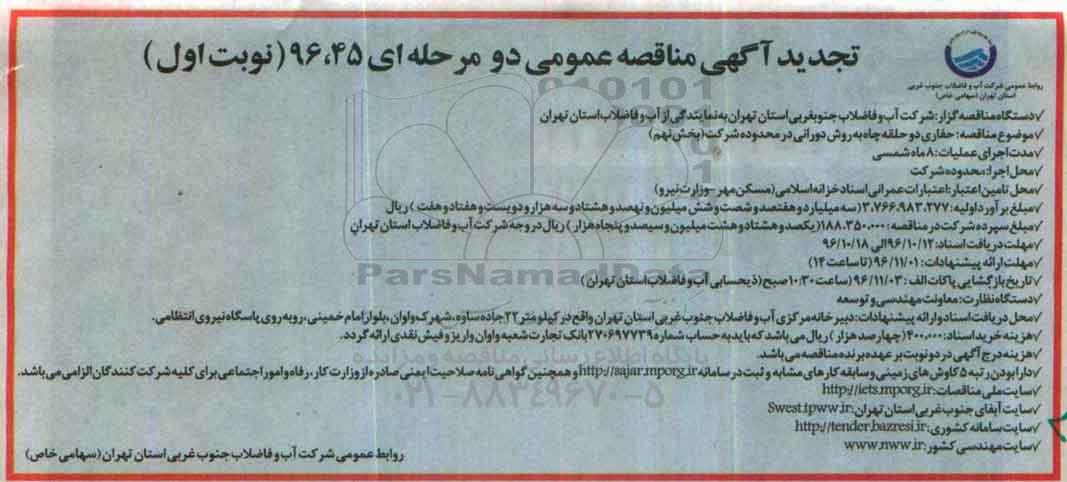 تجدید آگهی مناقصه عمومی دو مرحله ای ۹۶،۴۵ (نوبت اول)
روابط عمومی شرکت آب و فاضلاب جنوب غربی
استان تهران (سهامی خاص)
√دستگاه مناقصه گزار: شرکت آب و فاضلاب جنوبغربی استان تهران به نمایندگی از آب و فاضلاب استان تهران
√موضوع مناقصه: حفاری دو حلقه چاه به روش دورانی در محدوده شرکت (بخش نهم)
√مدت اجرای عملیات: ۸ ماه شمسی
√محل اجرا: محدوده شرکت
√محل تامین اعتبار: اعتبارات عمرانی اسناد خزانه اسلامی (مسکن مهر-وزارت نیرو)
√مبلغ برآورد اولیه: ۳،۷۶۶،۹۸۳،۲۷۷ (سه میلیارد و هفتصد و شصت و شش میلیون و نهصد و هشتاد و سه هزار و دویست و هفتاد و هفت ) ریال
√مبلغ سپرده شرکت در مناقصه: ۱۸۸،۳۵۰،۰۰۰ (یکصد و هشتاد و هشت میلیون و سیصد و پنجاه هزار ) ریال در وجه شرکت آب و فاضلاب استان تهران
√مهلت دریافت اسناد: ۹۶/۱۰/۱۲ الی ۹۶/۱۰/۱۸
√مهلت ارائه پیشنهادات: ۹۶/۱۱/۰۱ (تا ساعت ۱۴)
√تاریخ بازگشایی پاکات الف: ۹۶/۱۱/۰۳ (ساعت ۱۰:۳۰ صبح (ذیحسابی آب و فاضلاب استان تهران )
√دستگاه نظارت: معاونت مهندسی و توسعه
√محل دریافت اسناد و ارائه پیشنهادات: دبیرخانه مرکزی آب و فاضلاب جنوب غربی استان تهران واقع در کیلومتر ۲۲ جاده ساوه، شهرک واوان، بلوار امام خمینی، روبه روی پاسگاه نیروی انتظامی.
√هزینه خرید اسناد: ۴۰۰،۰۰۰ (چهارصد هزار ) ریال می باشد که باید به حساب شماره ۲۷۰۶۹۷۷۳۹ بانک تجارت شعبه واوان واریز و فیش نقدی ارائه گردد.
√هزینه درج آگهی در دو نوبت بر عهده برنده مناقصه می باشد.
√دارا بودن رتبه ۵ کاوش های زمینی و سابقه کارهای مشابه و ثبت در سامانه http://sajar.mporg.ir و همچنین گواهی نامه صلاحیت ایمنی صادره از وزارت کار، رفاه و امور اجتماعی برای کلیه شرکت کنندگان الزامی می باشد.
√سایت ملی مناقصات: http://iets.mporg.ir
√سایت آبفای جنوب غربی استان تهران: Swest.tpww.ir
√سایت سامانه کشوری: http://tender.bazresi.ir
√سایت مهندسی کشور: www.nww.ir
روابط عمومی شرکت آب و فاضلاب جنوب غربی استان تهران (سهامی خاص)
ParsNamadData
پایگاه اطلاع رسانی مناقصه و مزایده
۰۲۱-۸۸۳۴۹۶۷۰-۵